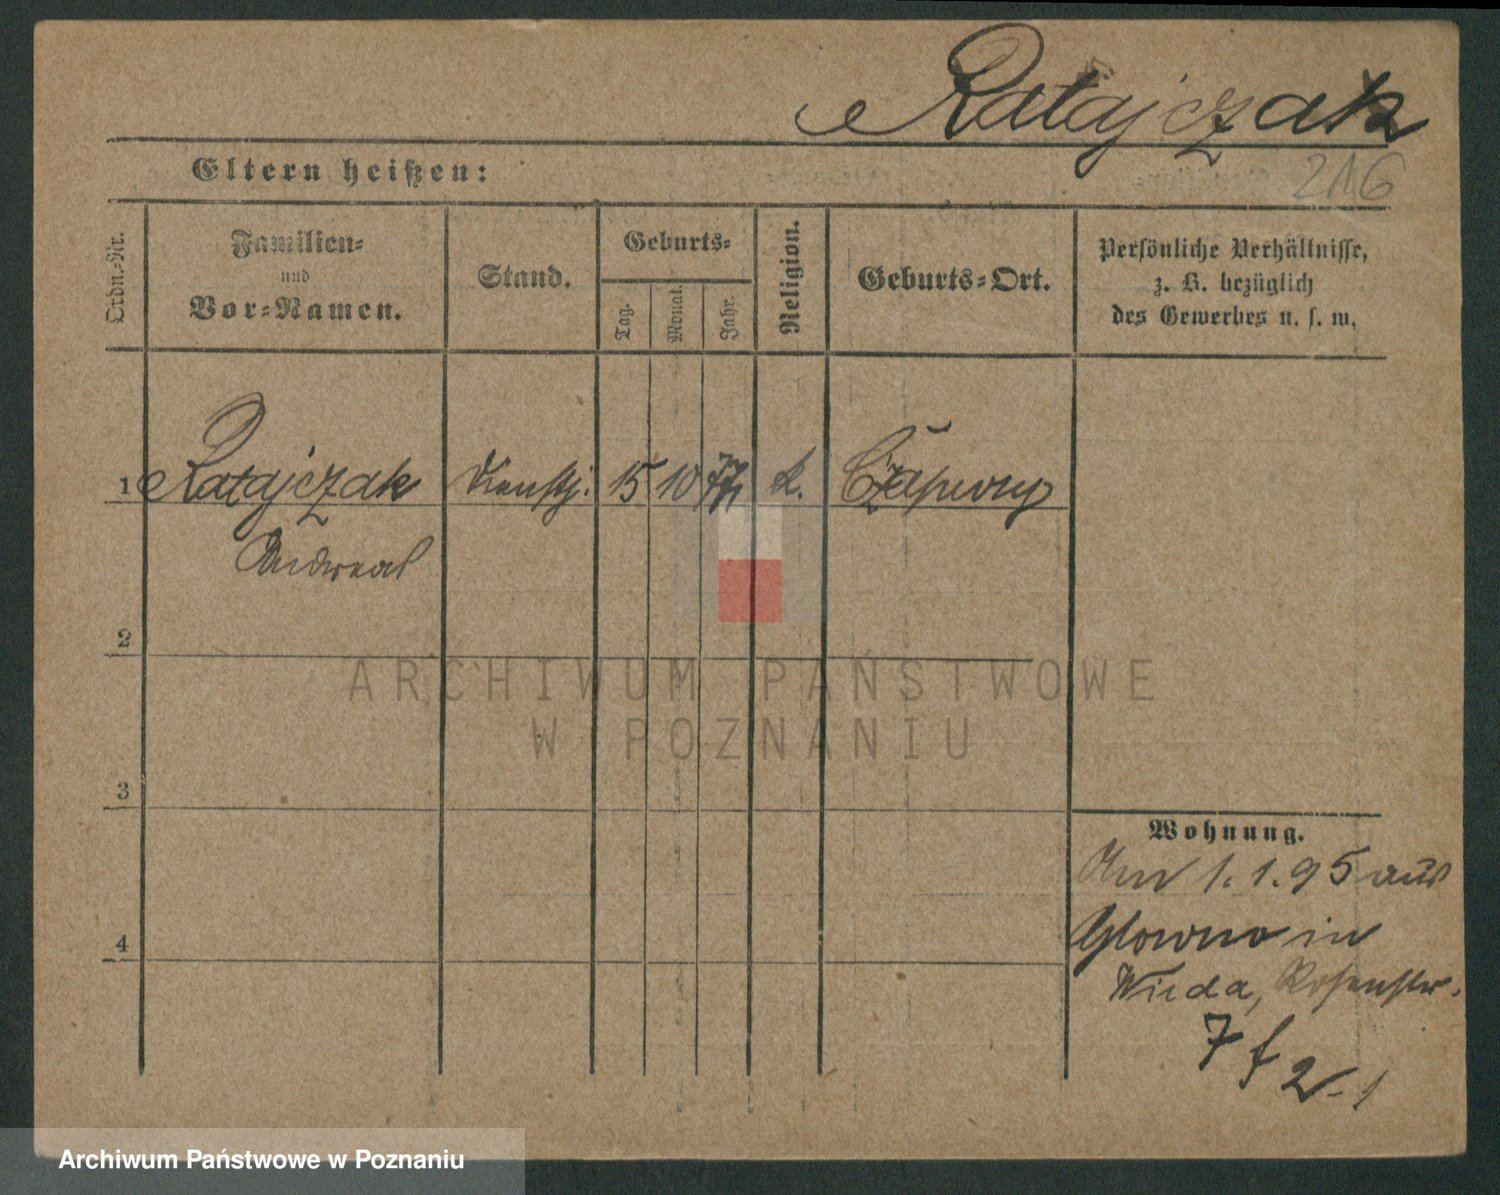 Ratajczak
216
Eltern heißen:
Ordn.-Nr.
Familien-
und
Vor-Namen.
Stand.
Geburts-
Tag.
Monat.
Jahr.
Religion.
Geburts-Ort.
Persönliche Verhältnisse,
z. B. bezüglich
des Gewerbes u. s. w.
1 Ratajczak Dienstj. 15 10 77 k.
Andreas
2
ARCHIWUM PAŃSTWOWE
W POZNANIU
3
Wohnung.
Am 1.1.95 aus
Glowno in
4
Wilda, Rosenstr.
7
Archiwum Państwowe w Poznaniu